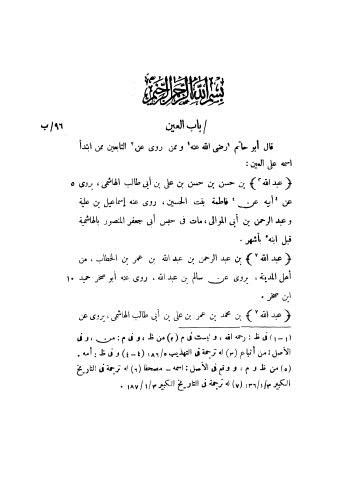 بسم الله الرحمن الرحيم
/ باب العين ٩٦/ب
قال أبو حاتم ١رضى الله عنه١ وممن روى عن٢ التابعين ممن ابتدأ
اسمه على العين:
﴿ عبد الله٣ ﴾ بن حسن بن حسن بن على بن أبى طالب الهاشمى، يروى ٥
عن ٤أبيه عن٤ فاطمة بنت الحسين، روى عنه إسماعيل بن علية
وعبد الرحمن بن أبى الموالى، مات فى حبس أبى جعفر المنصور بالهاشمية
قبل ابنه٥ بأشهر.
﴿ عبد الله٦ ﴾ بن عبد الرحمن بن عبد الله بن عمر بن الخطاب، من
أهل المدينة، يروى عن سالم بن عبد الله، روى عنه أبو صخر حميد ١٠
ابن صخر.
﴿ عبد الله٧ ﴾ بن محمد بن عمر بن على بن أبى طالب الهاشمى، يروى عن
(١-١) فى ظ: رحمه الله، وليست فى م (٢) من ظ، وفى م: من، وفى
الأصل: من أتباع (٣) له ترجمة فى التهذيب ١٨٦/٥ (٤-٤) وفى ظ: أمه.
(٥) من ظ وم، ووقع فى الأصل: اسمه - مصحفا (٦) له ترجمة فى التاريخ
الكبير ١٣٦/١/٣ (٧) له ترجمة فى التاريخ الكبير ١٨٧/١/٣.